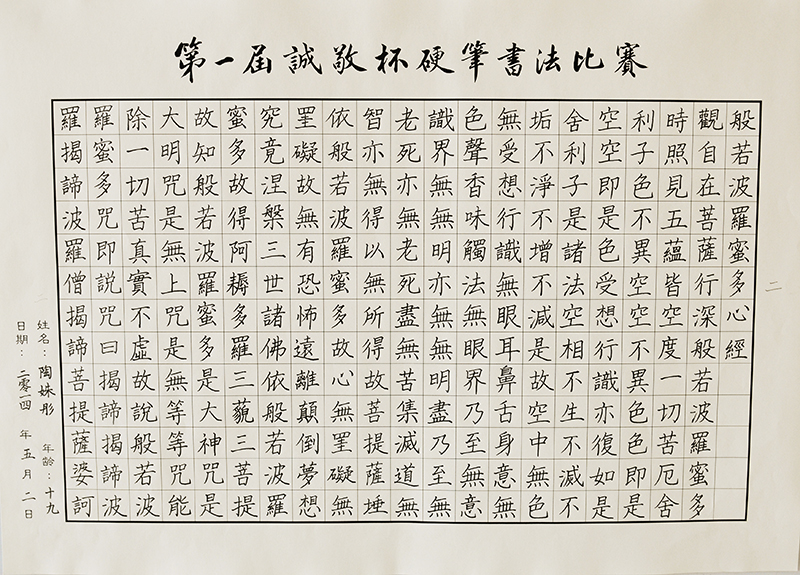 第一屆誠敬杯硬筆書法比賽
二
般若波羅蜜多心經
觀自在菩薩行深般若波羅蜜多
時照見五蘊皆空度一切苦厄舍
利子色不異空空不異色色即是
空空即是色受想行識亦復如是
舍利子是諸法空相不生不滅不
垢不淨不增不減是故空中無色
無受想行識無眼耳鼻舌身意無
色聲香味觸法無眼界乃至無意
識界無無明亦無無明盡乃至無
老死亦無老死盡無苦集滅道無
智亦無得以無所得故菩提薩埵
依般若波羅蜜多故心無罣礙無
罣礙故無有恐怖遠離顛倒夢想
究竟涅槃三世諸佛依般若波羅
蜜多故得阿耨多羅三藐三菩提
故知般若波羅蜜多是大神咒是
大明咒是無上咒是無等等咒能
除一切苦真實不虛故說般若波
羅蜜多咒即說咒曰揭諦揭諦波
羅揭諦波羅僧揭諦菩提薩婆訶
姓名：陶姝彤 年龄：十九
日期：二零一四 年 五 月 二 日